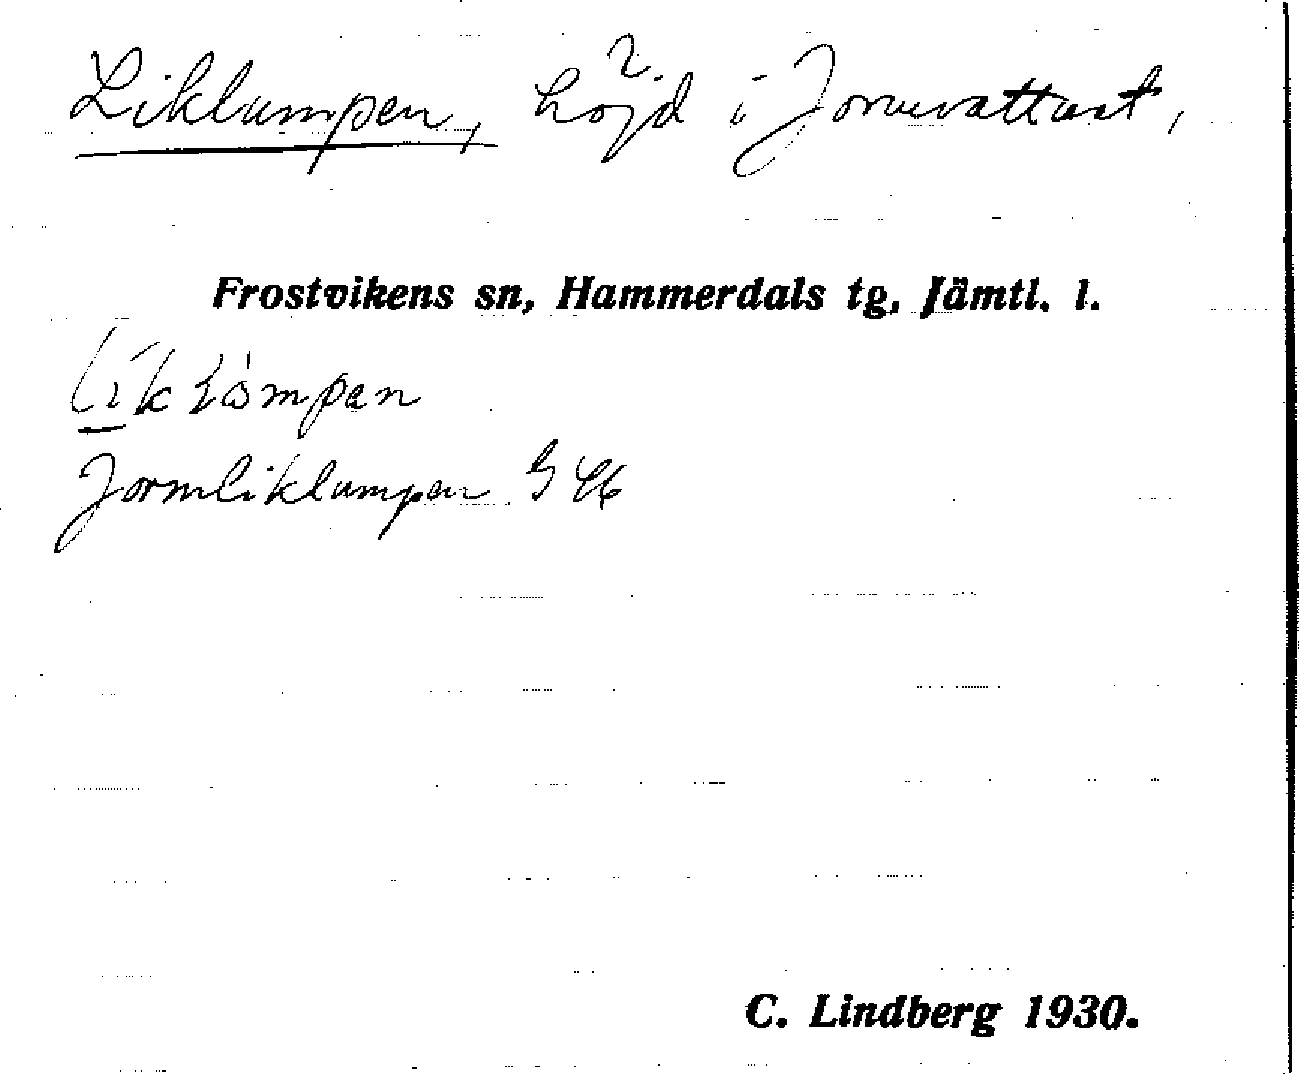 Liklumpen, höjd i Jormvattnet,
Frostvikens sn, Hammerdals tg, Jämtl. l.
Jormliklumpen G 46
C. Lindberg 1930.